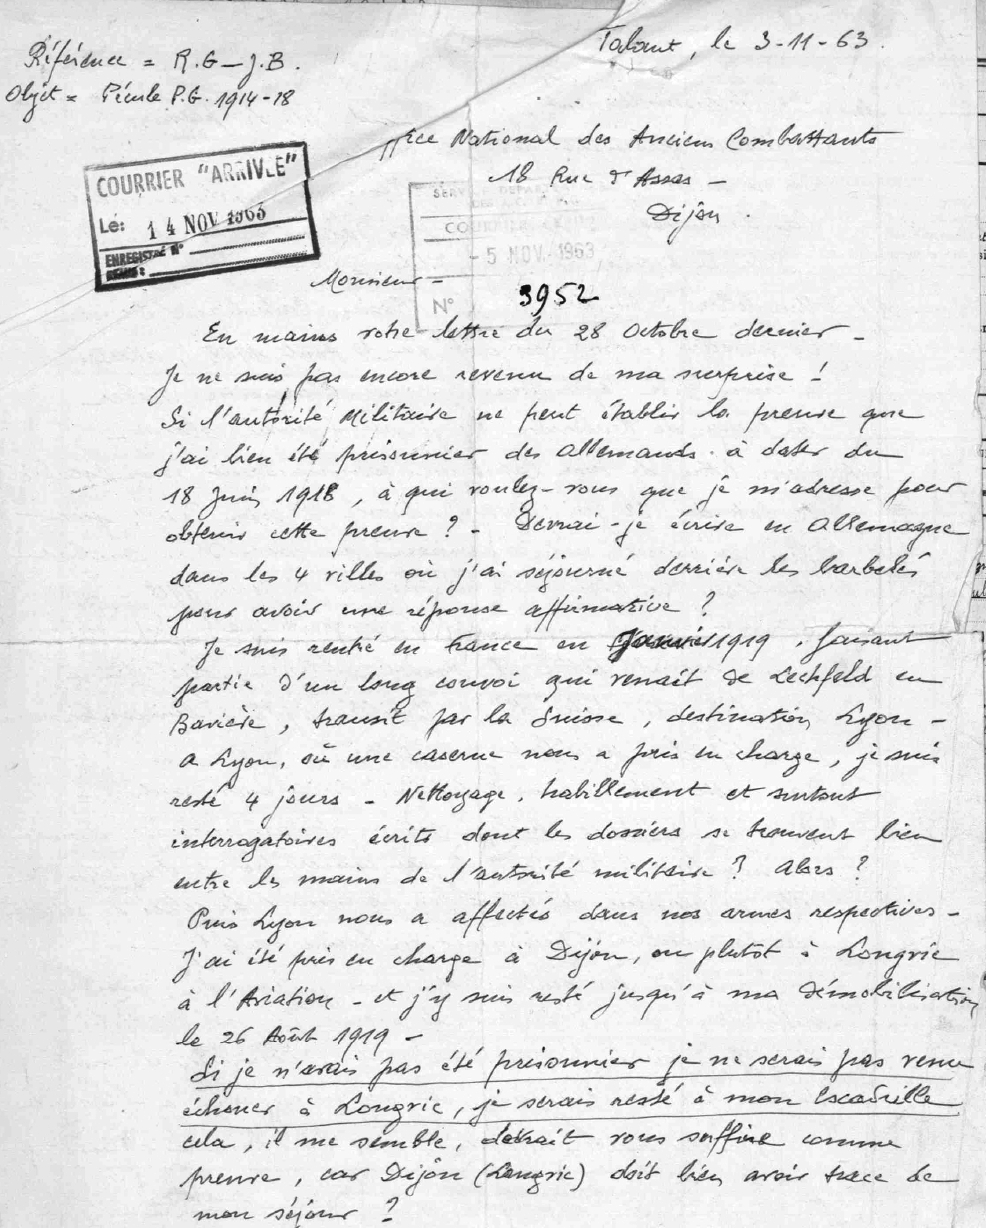 Talant, le 3-11-63.
Référence = R.G-J.B.
Objet = Pécule P.G. 1914-18
ffice National des Anciens Combattants
18 Rue d'Assas -
Dijon.
COURRIER "ARRIVÉE"
Lé: 14 NOV 1963
ENREGISTRÉ N°
SERVICE DEPART
COURRIER
- 5 NOV. 1963
N° 3952
Monsieur -
En mains votre lettre du 28 Octobre dernier -
Je ne suis pas encore revenu de ma surprise !
Si l'autorité Militaire ne peut établir la preuve que
j'ai bien été prisonnier des Allemands à dater du
18 Juin 1918, à qui voulez-vous que je m'adresse pour
obtenir cette preuve ? - Devrai-je écrire en Allemagne
dans les 4 villes où j'ai séjourné derrière les barbelés
pour avoir une réponse affirmative ?
Je suis rentré en France en Janvier 1919, faisant
partie d'un long convoi qui venait de Lechfeld en
Bavière, transit par la Suisse, destination Lyon -
A Lyon, où une caserne nous a pris en charge, je suis
resté 4 jours - Nettoyage, habillement et surtout
interrogatoires écrits dont les dossiers se trouvent bien
entre les mains de l'autorité militaire ? Alors ?
Puis Lyon nous a affectés dans nos armes respectives -
J'ai été pris en charge à Dijon, ou plutôt à Longvic
à l'Aviation - et j'y suis resté jusqu'à ma Démobilisation
le 26 Août 1919 -
Si je n'avais pas été prisonnier je ne serais pas venu
échouer à Longvic, je serais resté à mon Escadrille
cela, il me semble, devrait vous suffire comme
preuve, car Dijon (Longvic) doit bien avoir trace de
mon séjour ?